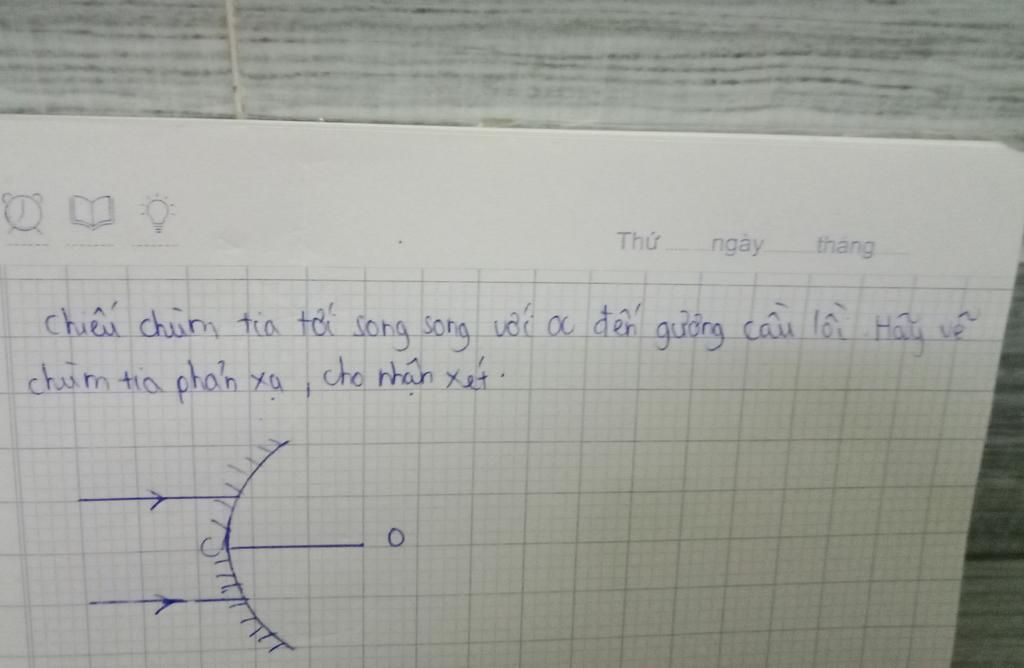 Thứ ngày tháng
Chiếu chùm tia tới song song với α đến gường cầu lồi Hãy vẽ
chùm tia phản xạ, cho nhận xét.
C O